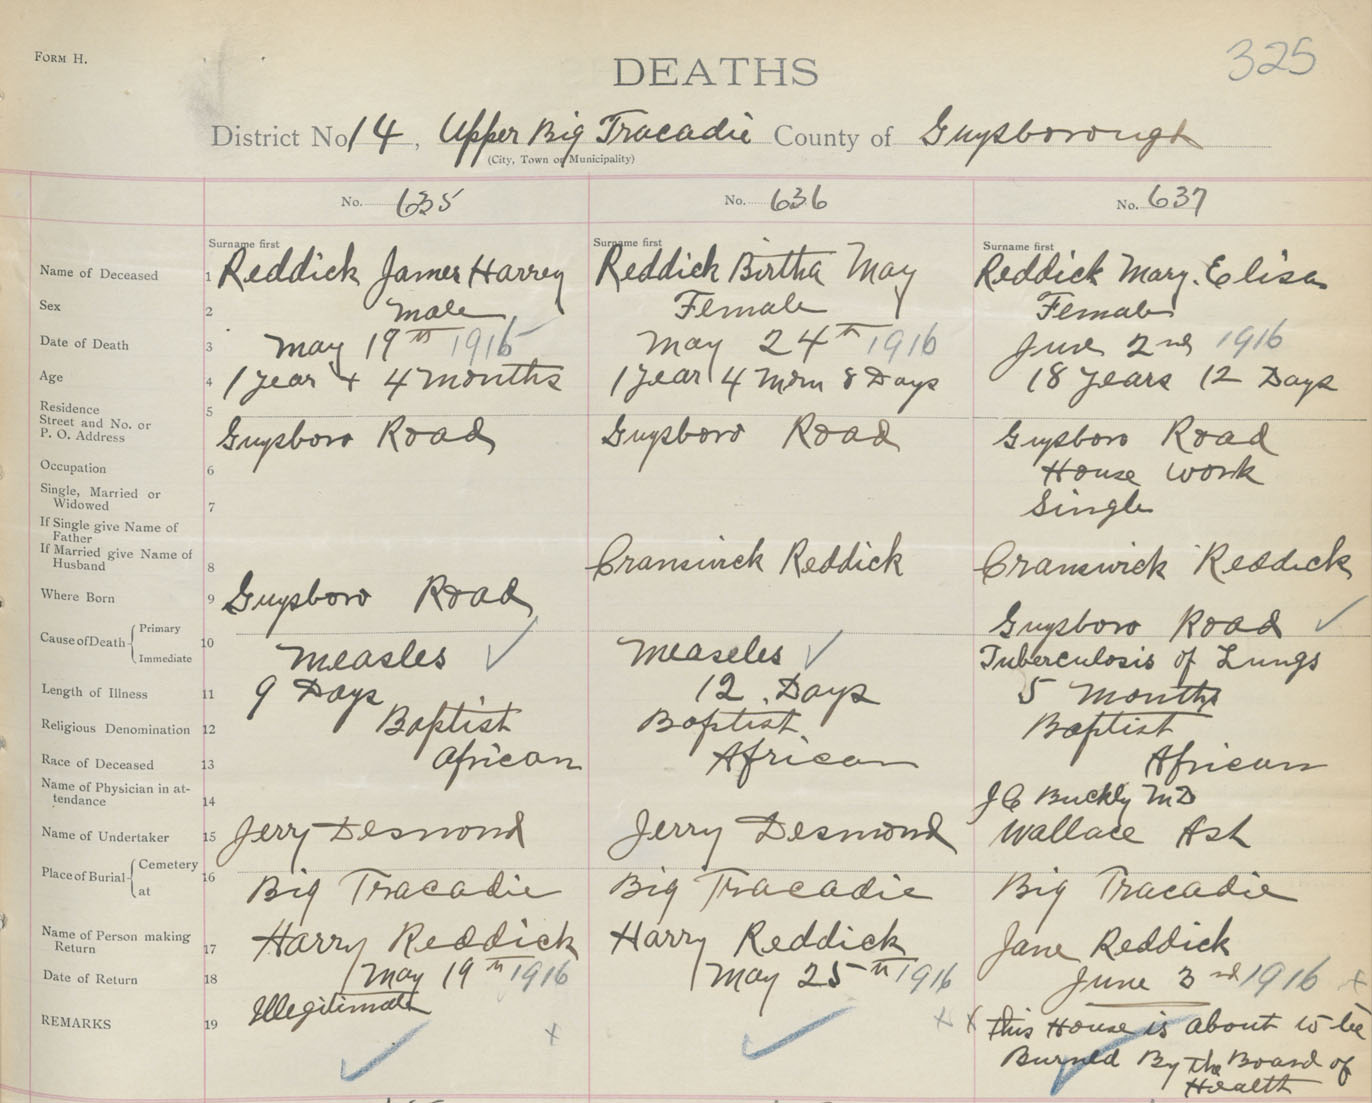 FORM H.
325
DEATHS
District No 14, Upper Big Tracadie County of Guysborough
(City, Town or Municipality)
No. 635 No. 636 No. 637
Surname first Surname first Surname first
Name of Deceased 1 Reddick James Harrey Reddick Birtha May Reddick Mary. Elisa
Sex 2 male Female Female
Date of Death 3 May 19th 1916 May 24th 1916 June 2nd 1916
Age 4 1 year + 4 months 1 year 4 Mon 8 Days 18 years 12 Days
Residence
Street and No. or
P. O. Address 5 Guysboro Road Guysboro Road Guysboro Road
Occupation 6 House work
Single, Married or
Widowed 7 Single
If Single give Name of
Father
If Married give Name of
Husband 8 Cranswick Reddick Cranswick Reddick
Where Born 9 Guysboro Road Guysboro Road
Cause of Death Primary
Immediate 10 Measles Measeles Tuberculosis of Lungs
Length of Illness 11 9 Days 12 Days 5 months
Religious Denomination 12 Baptist Baptist Baptist
Race of Deceased 13 African African African
Name of Physician in at-
tendance 14 J C Buckly MD
Name of Undertaker 15 Jerry Desmond Jerry Desmond Wallace Ash
Place of Burial Cemetery
at 16 Big Tracadie Big Tracadie Big Tracadie
Name of Person making
Return 17 Harry Reddick Harry Reddick Jane Reddick
Date of Return 18 May 19th 1916 May 25th 1916 June 3rd 1916 x
REMARKS 19 Illegitimate x x x this House is about to be
Burned By the Board of
Health